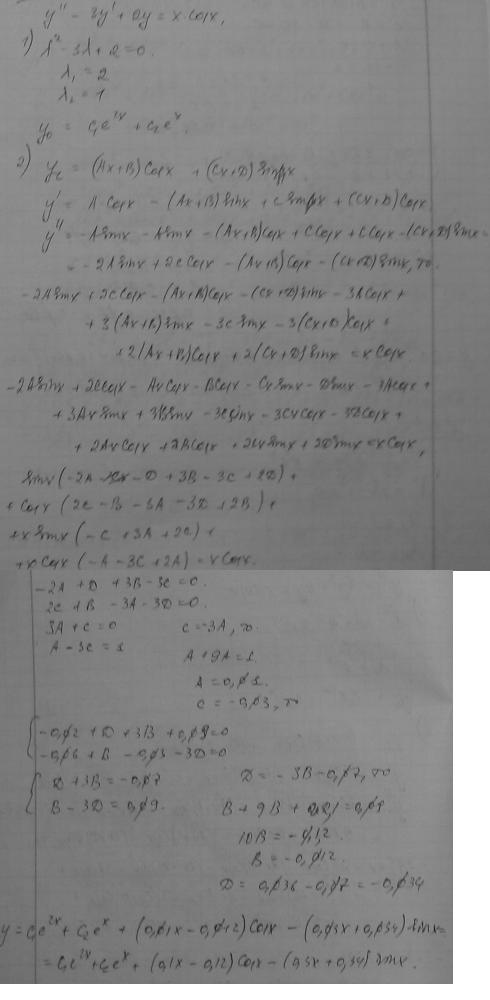 y'' - 3y' + 2y = x·cosx,
1) λ² - 3λ + 2 = 0.
λ₁ = 2
λ₂ = 1
y₀ = c₁e^{2x} + c₂e^x.
2) y_r = (Ax+B)cosx + (Cx+D)sinx
y' = A cosx - (Ax+B)sinx + C sinx + (Cx+D)cosx
y'' = -A sinx - A sinx - (Ax+B)cosx + C cosx + C cosx - (Cx+D)sinx =
= -2A sinx + 2C cosx - (Ax+B)cosx - (Cx+D)sinx, то.
-2A sinx + 2C cosx - (Ax+B)cosx - (Cx+D)sinx - 3A cosx +
+ 3(Ax+B)sinx - 3C sinx - 3(Cx+D)cosx +
+ 2(Ax+B)cosx + 2(Cx+D)sinx = x cosx
-2A sinx + 2C cosx - Ax cosx - B cosx - Cx sinx - D sinx - 3A cosx +
+ 3Ax sinx + 3B sinx - 3C sinx - 3Cx cosx - 3D cosx +
+ 2Ax cosx + 2B cosx + 2Cx sinx + 2D sinx = x cosx,
sinx(-2A - D + 3B - 3C + 2D) +
+ cosx(2C - B - 3A - 3D + 2B) +
+ x sinx(-C + 3A + 2C) +
+ x cosx(-A - 3C + 2A) = x cosx.
-2A + D + 3B - 3C = 0.
2C + B - 3A - 3D = 0.
3A + C = 0 C = -3A, то.
A - 3C = 1 A + 9A = 1.
A = 0,1.
C = -0,3, то
-0,2 + D + 3B + 0,9 = 0
-0,6 + B - 0,3 - 3D = 0
D + 3B = -0,7 D = -3B - 0,7, то
B - 3D = 0,9. B + 9B + 2,1 = 0,9
10B = -1,2.
B = -0,12.
D = 0,36 - 0,7 = -0,34
y = c₁e^{2x} + c₂e^x + (0,1x - 0,12)cosx - (0,3x + 0,34)sinx =
= c₁e^{2x} + c₂e^x + (0,1x - 0,12)cosx - (0,3x + 0,34)sinx.